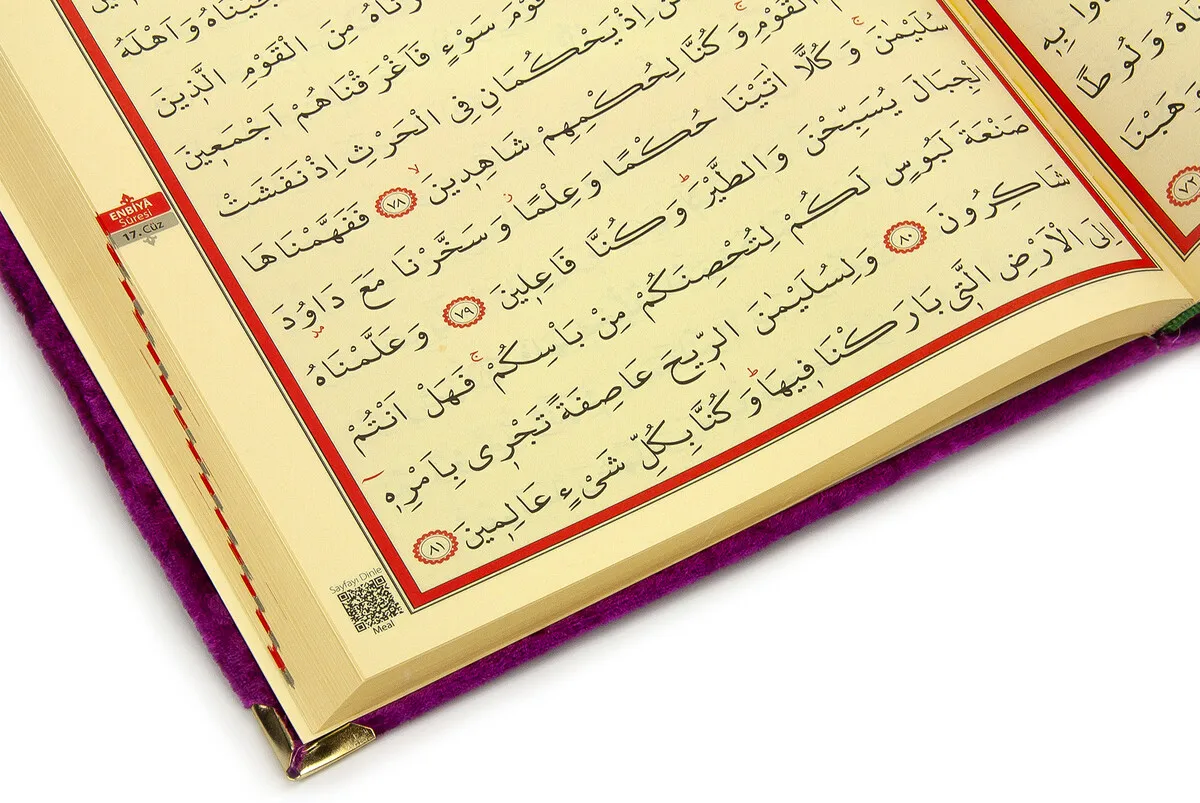 وَلُوطًا
وَهَبْنَا
٧٢
وَاَهْلَهُ
مِنَ الْقَوْمِ الَّذٖينَ
قَوْمَ سَوْءٍ فَاَغْرَقْنَاهُمْ اَجْمَعٖينَ
اِذْ يَحْكُمَانِ فِي الْحَرْثِ اِذْ نَفَشَتْ
الْقَوْمِ وَكُنَّا لِحُكْمِهِمْ شَاهِدٖينَ ٧٨ فَفَهَّمْنَاهَا
سُلَيْمٰنَ وَكُلًّا اٰتَيْنَا حُكْمًا وَعِلْمًا وَسَخَّرْنَا مَعَ دَاوُدَ
الْجِبَالَ يُسَبِّحْنَ وَالطَّيْرَ وَكُنَّا فَاعِلٖينَ ٧٩ وَعَلَّمْنَاهُ
صَنْعَةَ لَبُوسٍ لَكُمْ لِتُحْصِنَكُمْ مِنْ بَأْسِكُمْ فَهَلْ اَنْتُمْ
شَاكِرُونَ ٨٠ وَلِسُلَيْمٰنَ الرّٖيحَ عَاصِفَةً تَجْرٖى بِاَمْرِهٖ
اِلَى الْاَرْضِ الَّتٖى بَارَكْنَا فٖيهَا وَكُنَّا بِكُلِّ شَىْءٍ عَالِمٖينَ ٨١
ENBİYÂ
Sûresi
17. Cüz
Sayfayı Dinle
Meal